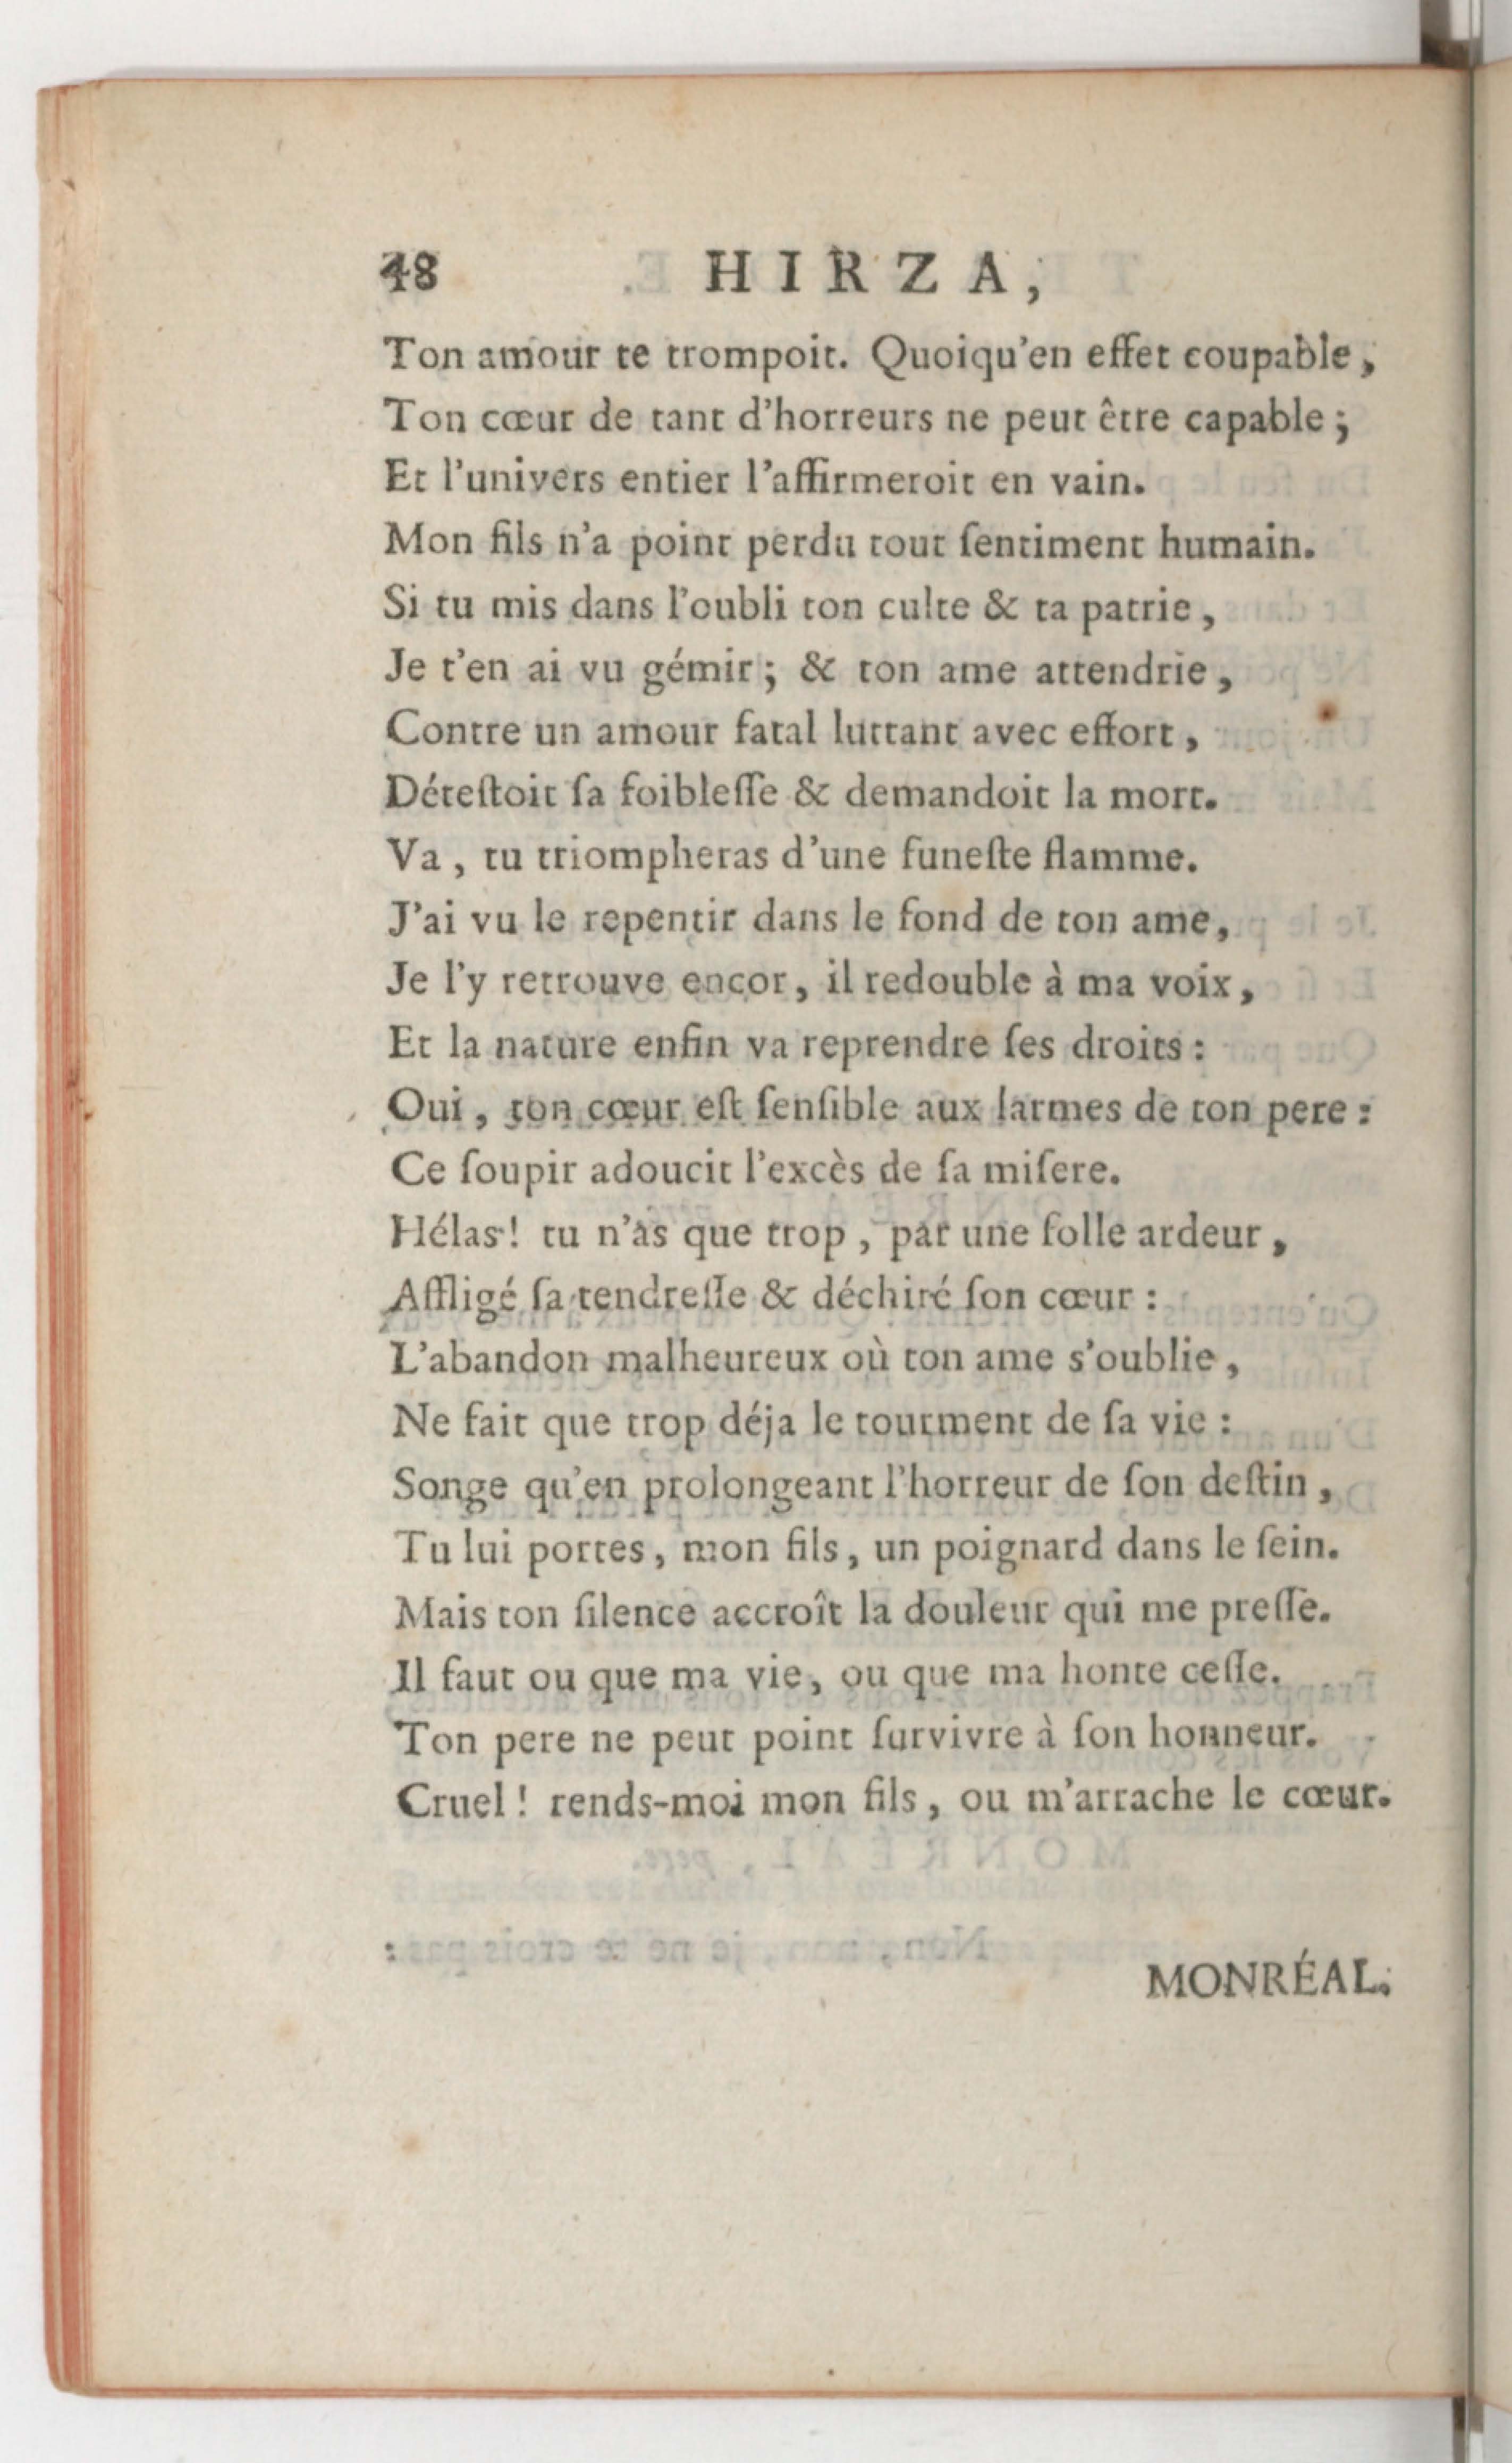 48 HIRZA,
Ton amour te trompoit. Quoiqu'en effet coupable,
Ton cœur de tant d'horreurs ne peut être capable ;
Et l'univers entier l'affirmeroit en vain.
Mon fils n'a point perdu tout ſentiment humain.
Si tu mis dans l'oubli ton culte & ta patrie,
Je t'en ai vu gémir ; & ton ame attendrie,
Contre un amour fatal luttant avec effort,
Déteſtoit ſa foibleſſe & demandoit la mort.
Va, tu triompheras d'une funeſte flamme.
J'ai vu le repentir dans le fond de ton ame,
Je l'y retrouve encor, il redouble à ma voix,
Et la nature enfin va reprendre ſes droits :
Oui, ton cœur eſt ſenſible aux larmes de ton pere :
Ce ſoupir adoucit l'excès de ſa miſere.
Hélas ! tu n'as que trop, par une folle ardeur,
Affligé ſa tendreſſe & déchiré ſon cœur :
L'abandon malheureux où ton ame s'oublie,
Ne fait que trop déja le tourment de ſa vie :
Songe qu'en prolongeant l'horreur de ſon deſtin,
Tu lui portes, mon fils, un poignard dans le ſein.
Mais ton ſilence accroît la douleur qui me preſſe.
Il faut ou que ma vie, ou que ma honte ceſſe.
Ton pere ne peut point ſurvivre à ſon honneur.
Cruel ! rends-moi mon fils, ou m'arrache le cœur.
MONRÉAL.